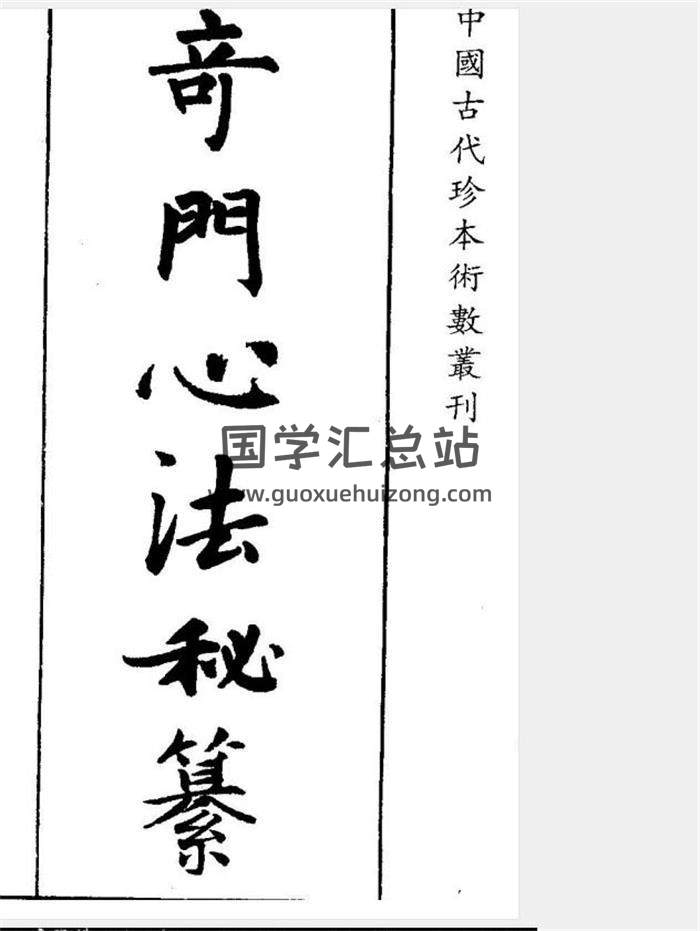 中國古代珍本術數叢刊
奇門心法秘纂
国学汇总站
www.guoxuehuizong.com